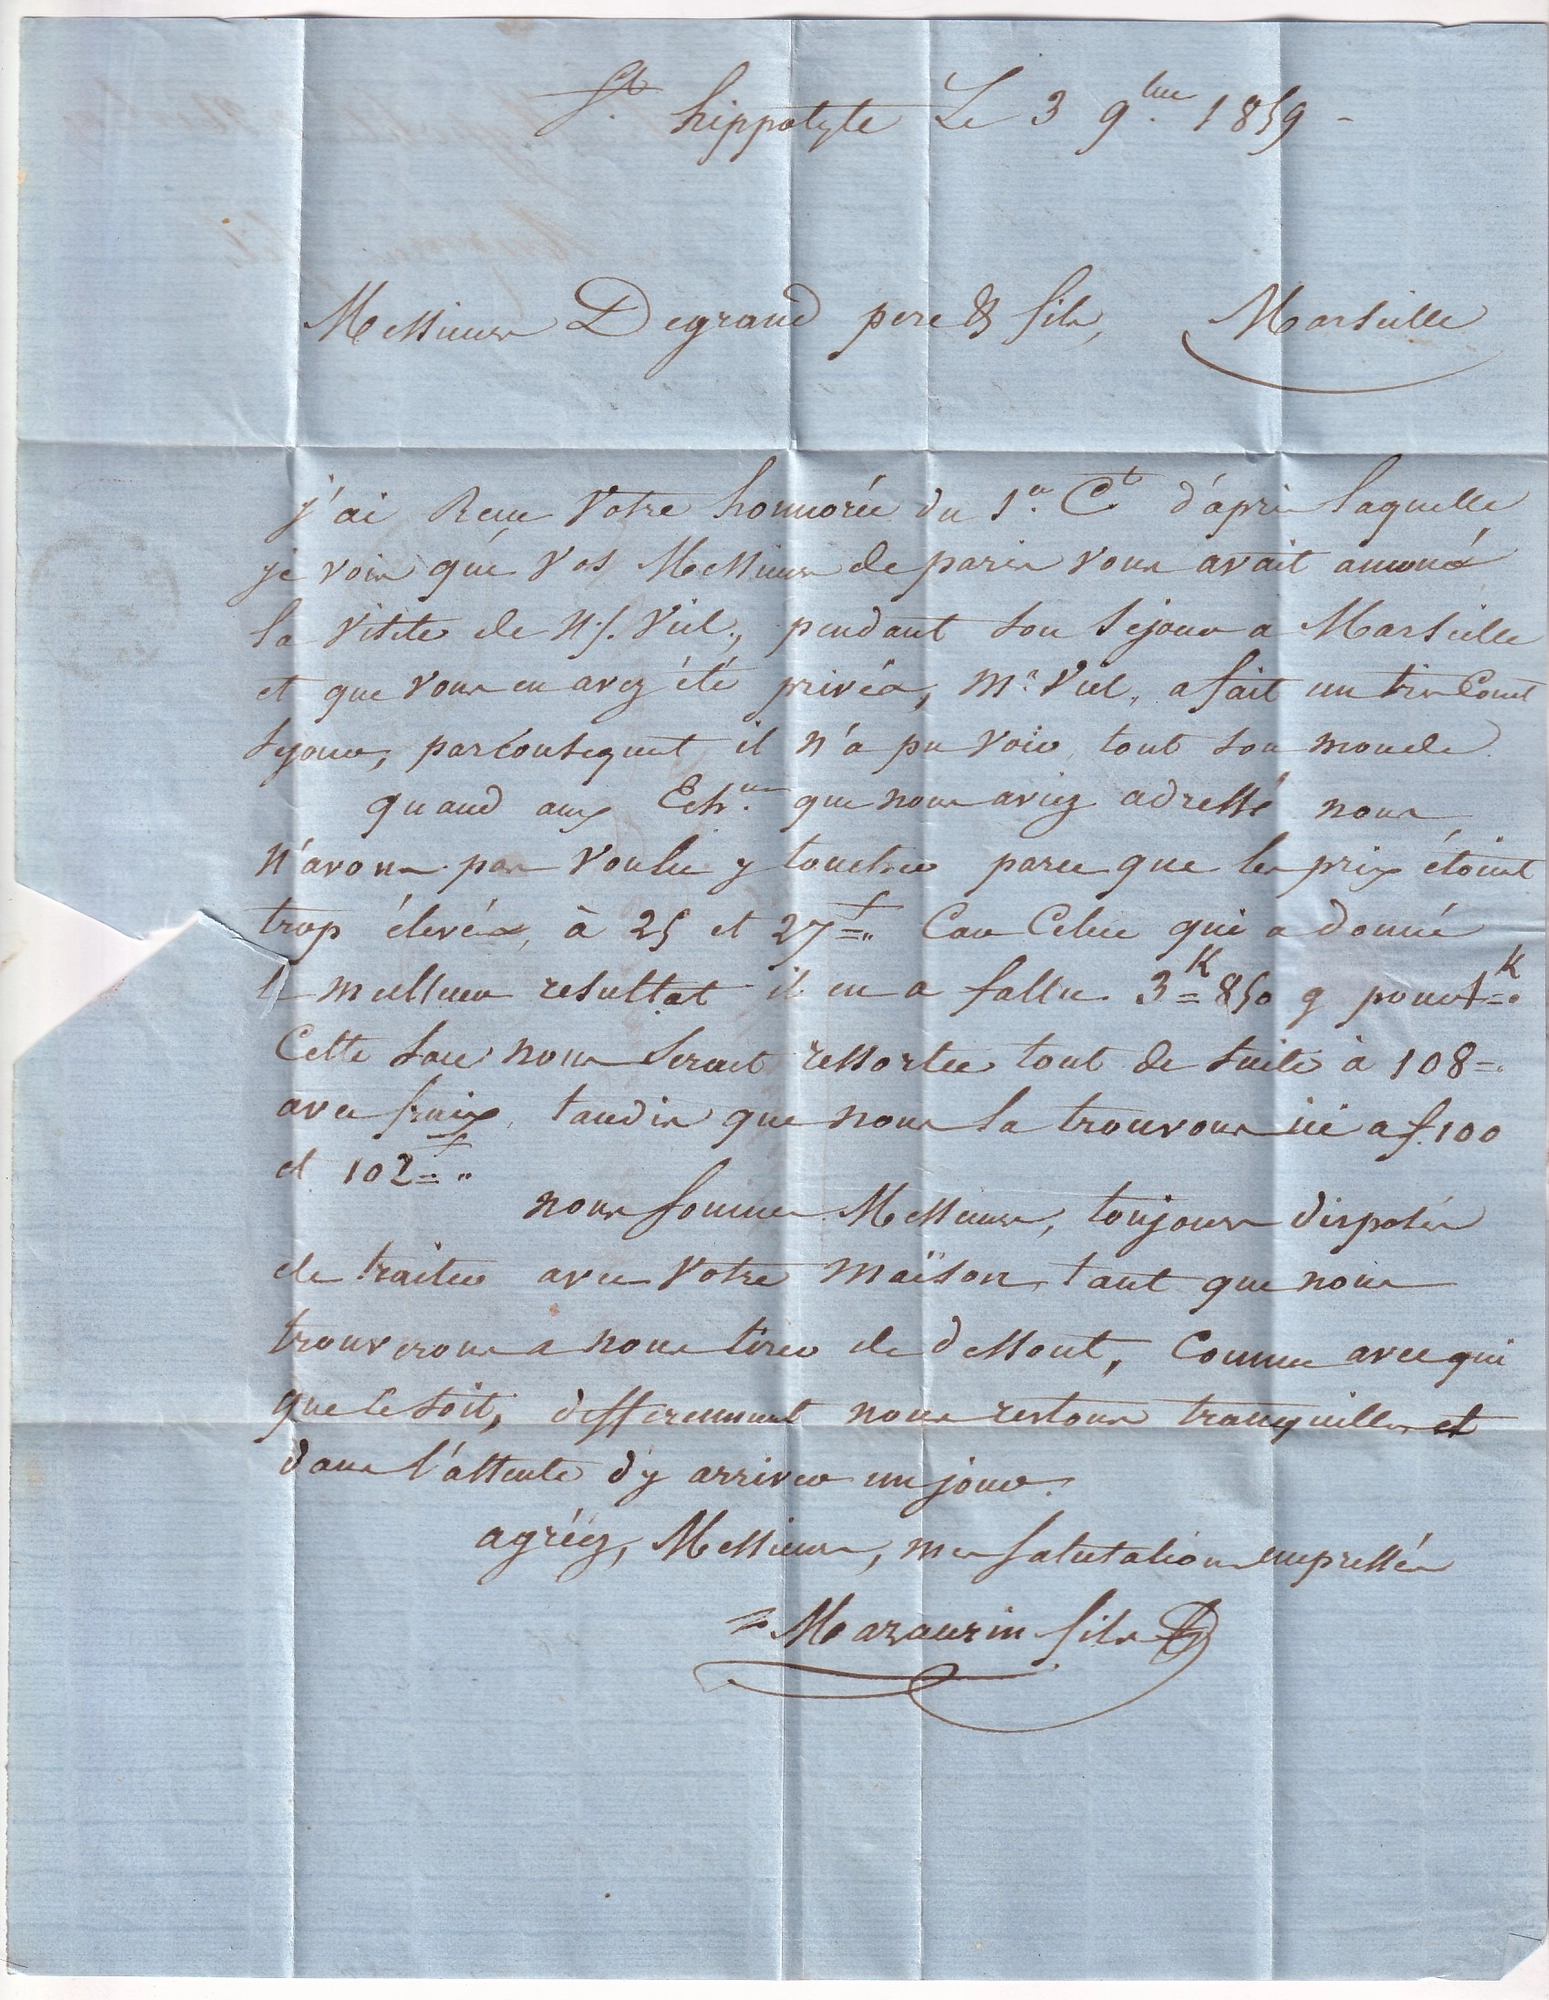 St. hippolyte Le 3 9bre. 1859 -
Messieurs Degrand pere & fils, Marseille
j'ai Recu Votre honnorée du 1er. Ct. d'après laquelle
je vois qué Vos Messieurs de paris vous avait annoncé
la Visite de N/. Viel., pendant son Séjour a Marseille
et que vous en avez été privés, Mr. Viel, a fait un tres Court
Sejour, parconsequent il n'a pu voir tout son monde.
quand aux Echons. que nous aviez adressé nous
N'avons pas Voulu y toucher parce que les prix étoient
trop élevés, à 25 et 27f=" Car Celui qui a donné
le meilleur resultat il en a fallu 3K=850 g pour 1K=.
Cette Soie nous Serait ressortie tout de Suite à 108=.
avec fraix, tandis que nous la trouvons ici a f.100
et 102f=."
nous Sommes Messieurs, toujours disposés
de traiter avec Votre Maïson, tant que nous
trouverons a nous tirer de dessout, Comme avec qui
que Ce Soit, differemment nous restons tranquilles et
dans l'attente d'y arriver un jour.
agréez, Messieurs, mes Salutations empressées
Mazaurin fils